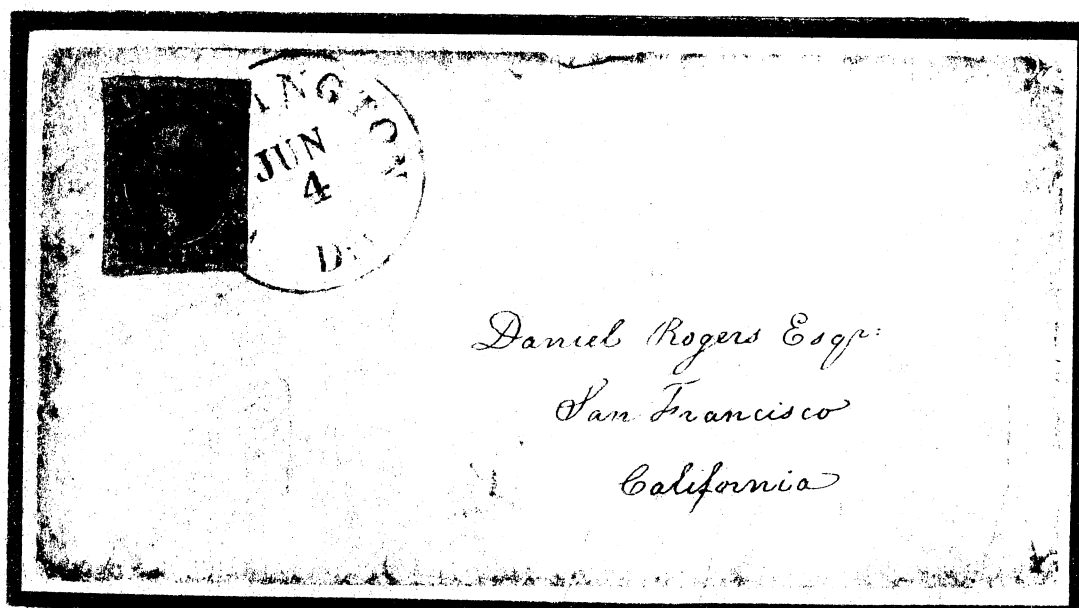 INGTON
JUN
4
D
Daniel Rogers Esqr:
San Francisco
California